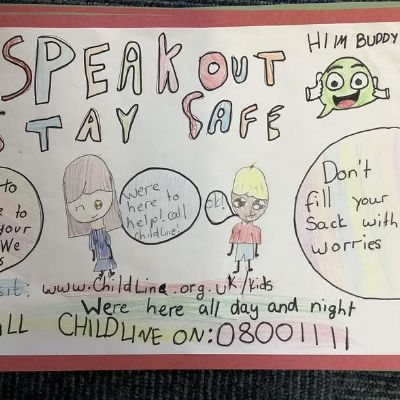 SPEAK OUT
STAY SAFE
HI IM BUDDY
to
e to
your
We
s
Were
here to
help! call
Childline!
ok!
Don't
fill your
Sack with
worries
sit: www.ChildLine.org.uk/kids
Were here all day and night
ALL CHILDLINE ON: 08001111